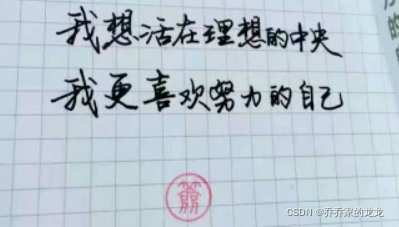 我想活在理想的中央
我更喜欢努力的自己
CSDN @乔乔家的龙龙